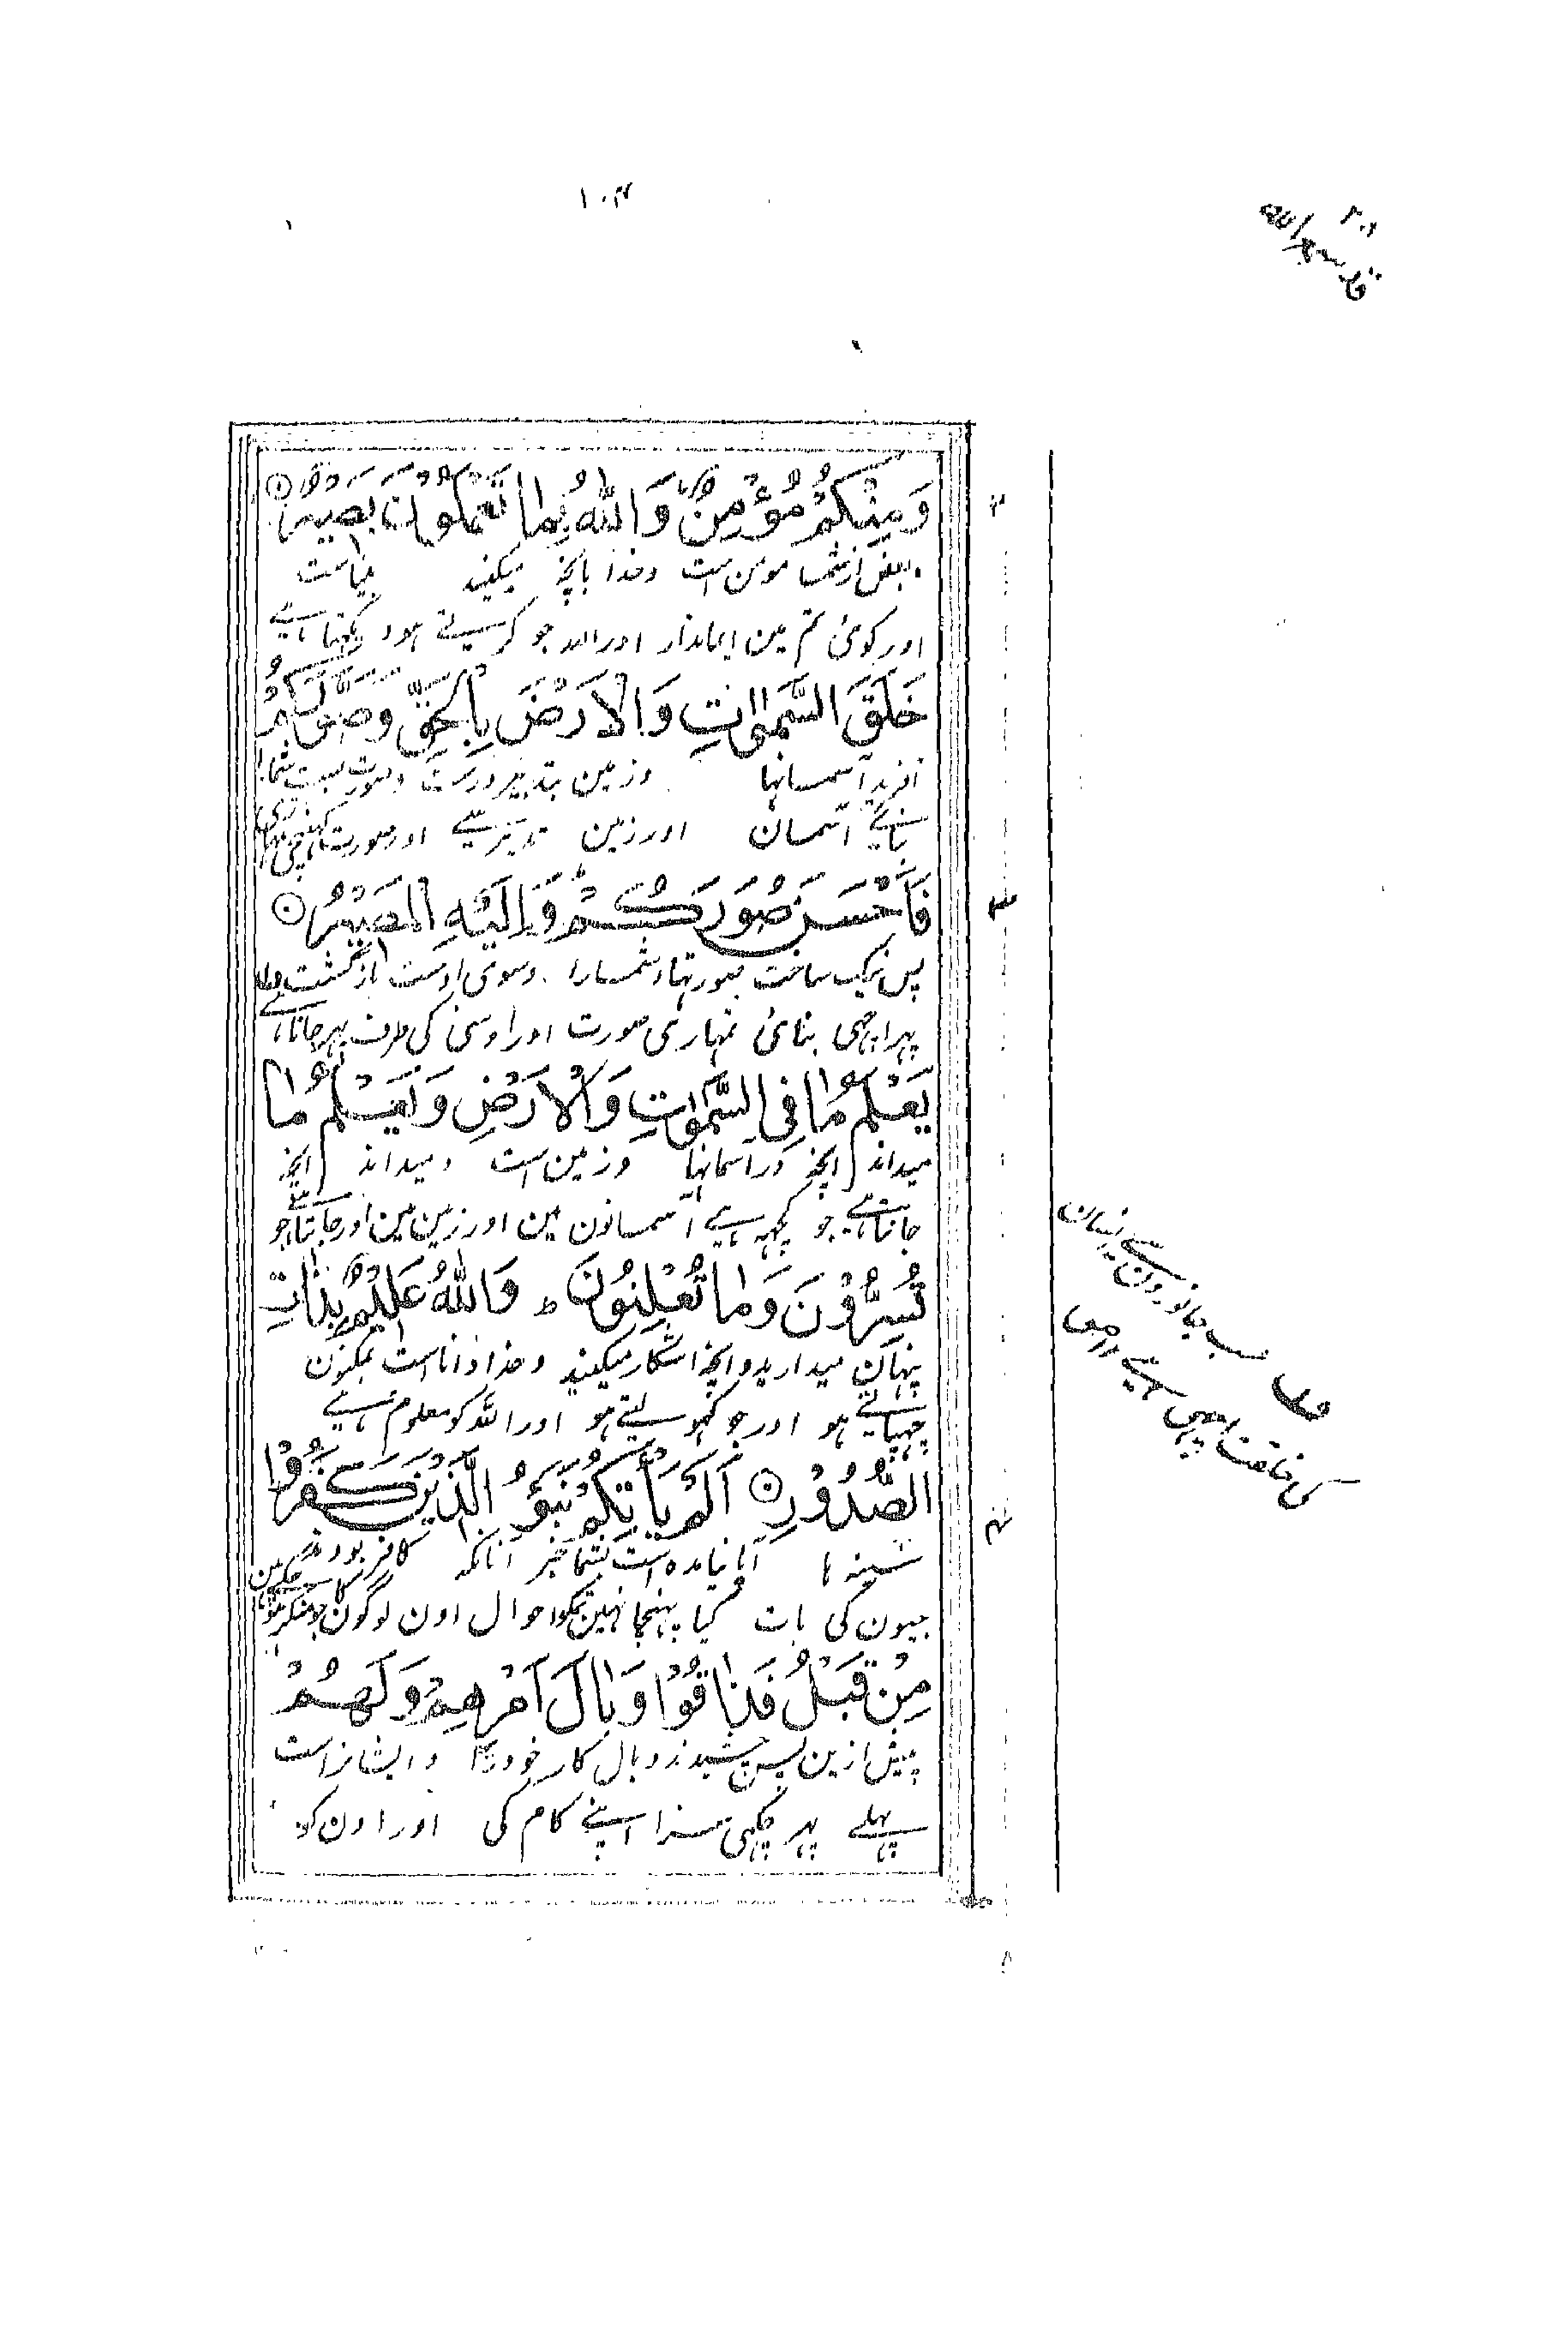 ١٠٤
وَمِنْكُمْ مُؤْمِنٌ وَاللّٰهُ بِمَا تَعْمَلُوْنَ بَصِيْرٌ
بعضی از شما مومن است و خدا بانچه میکنید بیناست
اور کوئی تم مین ایماندار اور الله جو کرتے ہو دیکھتا ہے
خَلَقَ السَّمٰوَاتِ وَالْاَرْضَ بِالْحَقِّ وَصَوَّرَكُمْ
آفرید آسمانها و زمین بتدبیر درست و صورت بست شمارا
بنائے آسمان اور زمین تدبیر سے اور صورت کھینچی تمہاری
فَاَحْسَنَ صُوَرَكُمْ وَاِلَيْهِ الْمَصِيْرُ
پس نیک ساخت صورتهاء شمارا و سوی اوست بازگشت
پہر اچہی بنائی تمہاری صورت اور اوسی کی طرف پہر جانا ہے
يَعْلَمُ مَا فِى السَّمٰوٰتِ وَالْاَرْضِ وَيَعْلَمُ مَا
میداند انچه در آسمانها و زمین است و میداند انچه
جانتا ہے جو کچہہ ہے آسمانون مین اور زمین مین اور جانتا ہے جو
تُسِرُّوْنَ وَمَا تُعْلِنُوْنَ ط وَاللّٰهُ عَلِيْمٌ بِذَاتِ
پنهان میدارید و انچه اشکار میکنید و خدا داناست بمکنون
چہپاتے ہو اور جو کہولتے ہو اور الله کو معلوم ہے
الصُّدُوْرِ اَلَمْ يَأْتِكُمْ نَبَؤُ الَّذِيْنَ كَفَرُوْا
سینہ ہا آیا نیامده است بشما خبر آنانکه کافر بودند
جیون کی بات کیا پہنچا نہین تمکو احوال اون لوگون کا جو منکر ہو چکے ہین
مِنْ قَبْلُ فَذَاقُوْا وَبَالَ اَمْرِهِمْ وَلَهُمْ
پیش ازین پس چشیدند وبال کار خود را و ایشانراست
پہلے پہر چکہی سزا اپنے کام کی اور اون کو
سب جانورون سے انسان
کی خلقت اچہی ہے